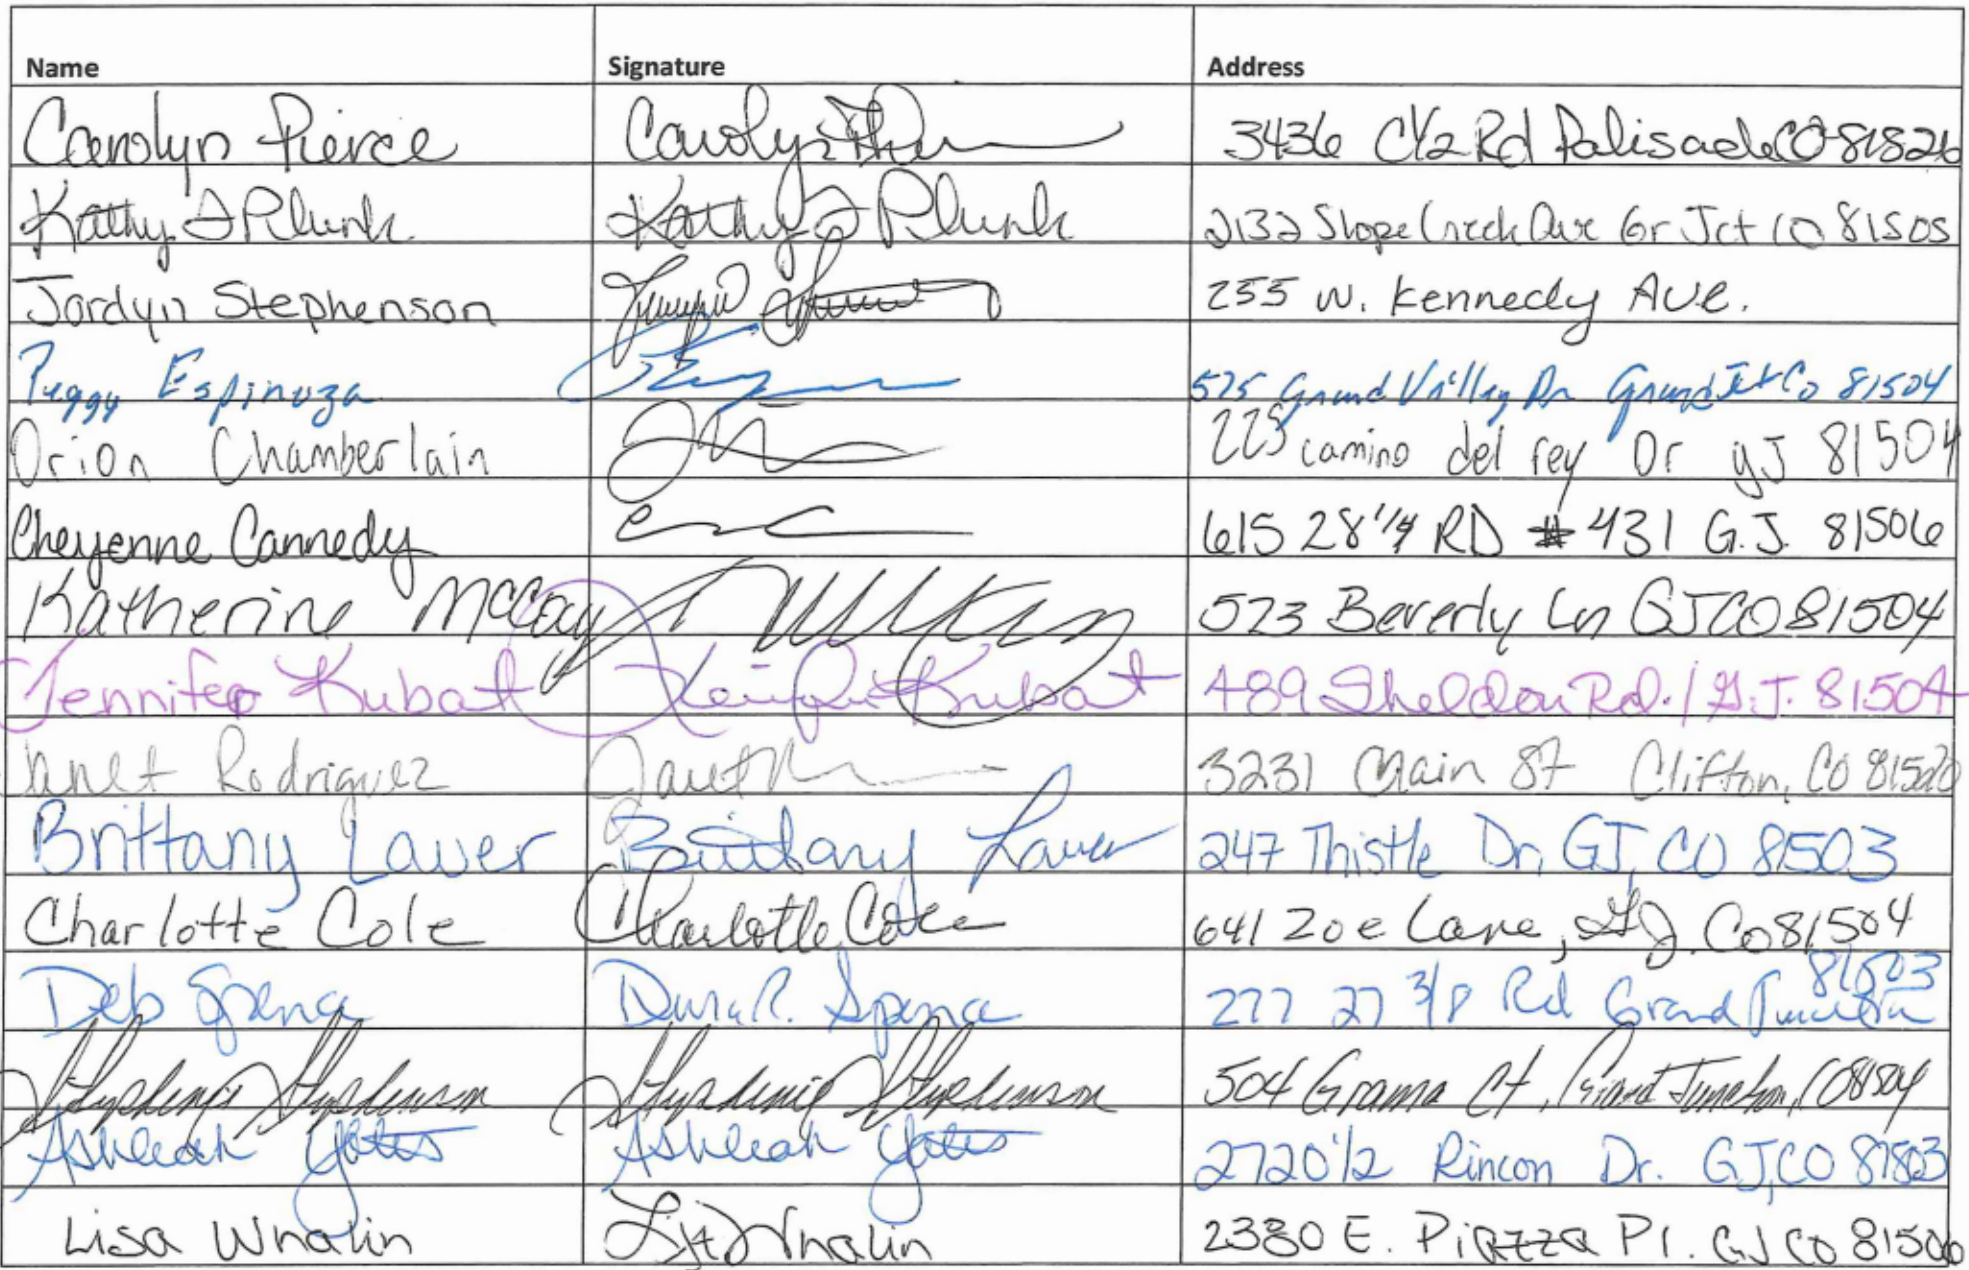 Name Signature Address
Carolyn Pierce Carolyn 3436 C1/2 Rd Palisade CO 81526
Kathy J Plunk Kathy J Plunk 2132 Slope Creek Ave Gr Jct CO 81505
Jordyn Stephenson 255 W. Kennedy Ave.
Peggy Espinoza 575 Grand Valley Dr Grand Jct Co 81504
Orion Chamberlain 225 camino del rey Dr gJ 81504
Cheyenne Cannedy 615 28 1/4 RD # 431 G.J. 81506
Katherine McCoy 573 Beverly Ln GJ CO 81504
Jennifer Kubat Jennifer Kubat 489 Sheldon Rd. / G.J. 81504
Janet Rodriguez Janet 3231 Main St Clifton, CO 81520
Brittany Laver Brittany Laver 247 Thistle Dr, GJ, CO 81503
Charlotte Cole Charlotte Cole 641 Zoe Lane, GJ, Co 81504
Deb Spence R. Spence 277 27 3/8 Rd Grand Junction 81503
Stephenie Stephenson Stephenie Stephenson 504 Grama Ct, Grand Junction, CO 81504
Ashleah Yates Ashleah Yates 2720 1/2 Rincon Dr. GJ, CO 81503
Lisa Whalin Whalin 2380 E. Piazza Pl. GJ CO 81506